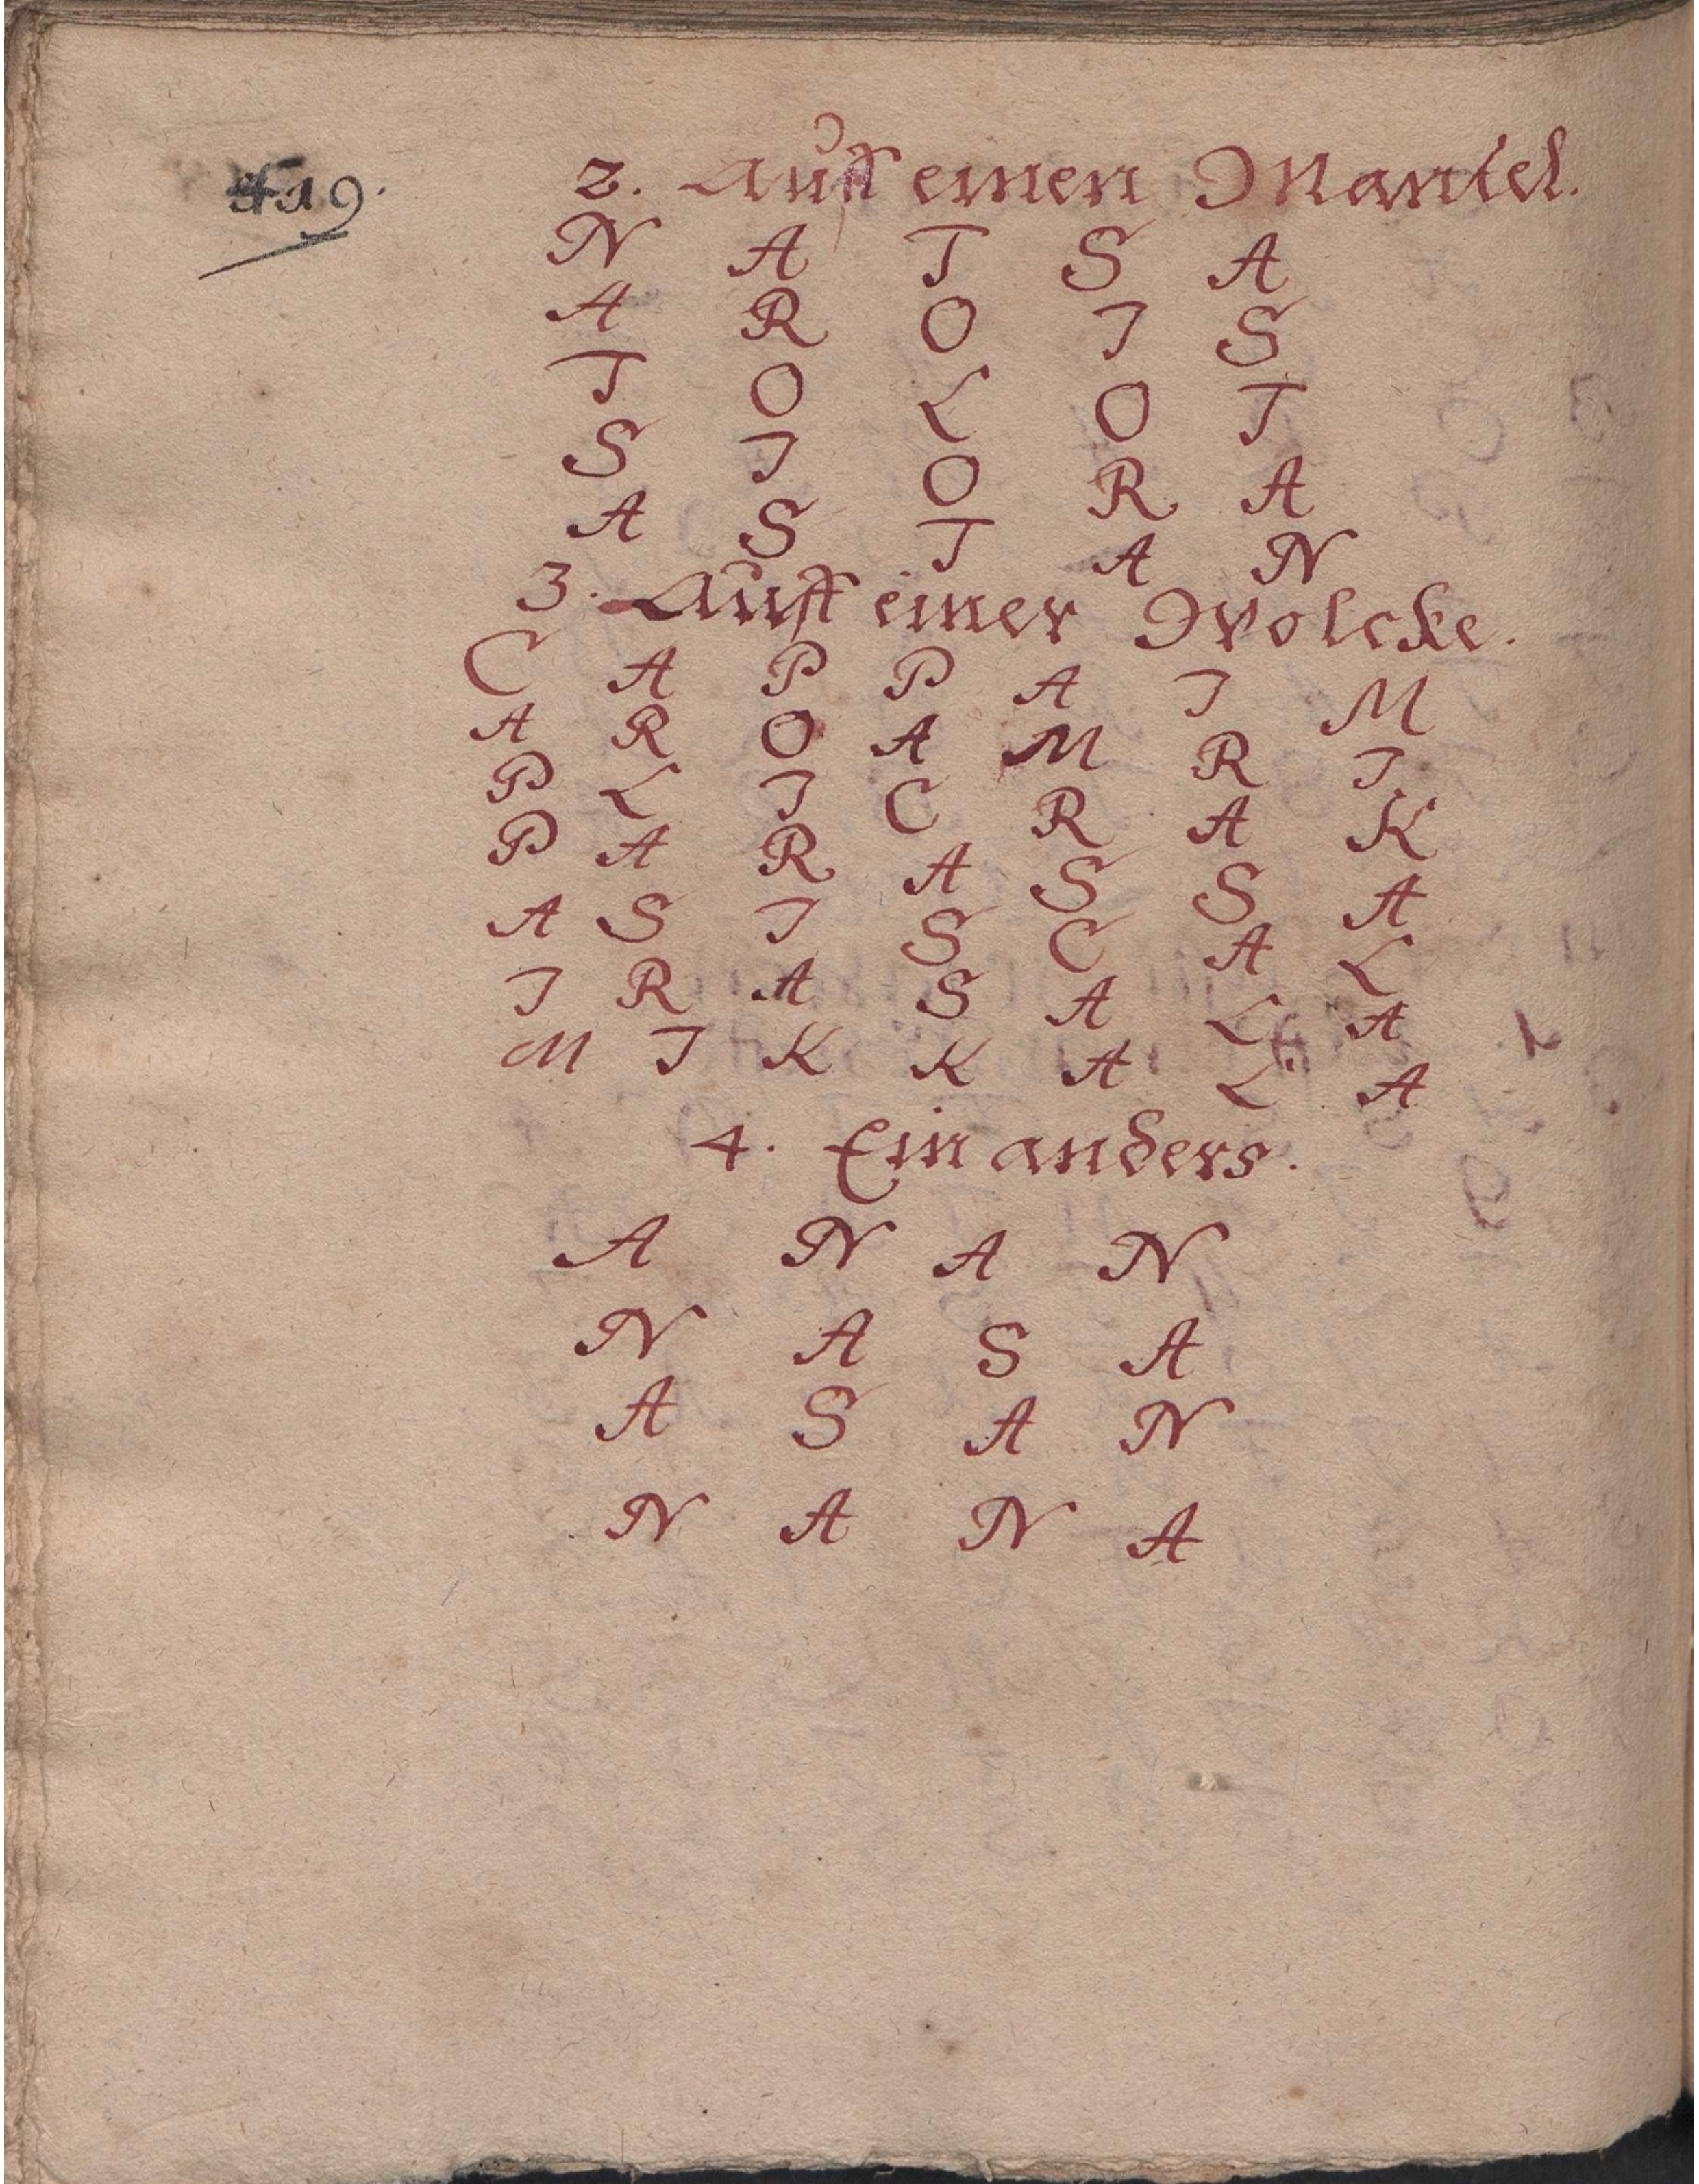 419.
2. Auff einen Mantel.
N A T S A
A R O I S
T O L O T
S I O R A
A S T A N
3. Auff einer Wolcke.
C A P P A I M
A R O A M R I
P L I C R A K
P A R A S S A
A S I S C A L
I R A S A L A
M I K K A L A
4. Ein anders.
A N A N
N A S A
A S A N
N A N A